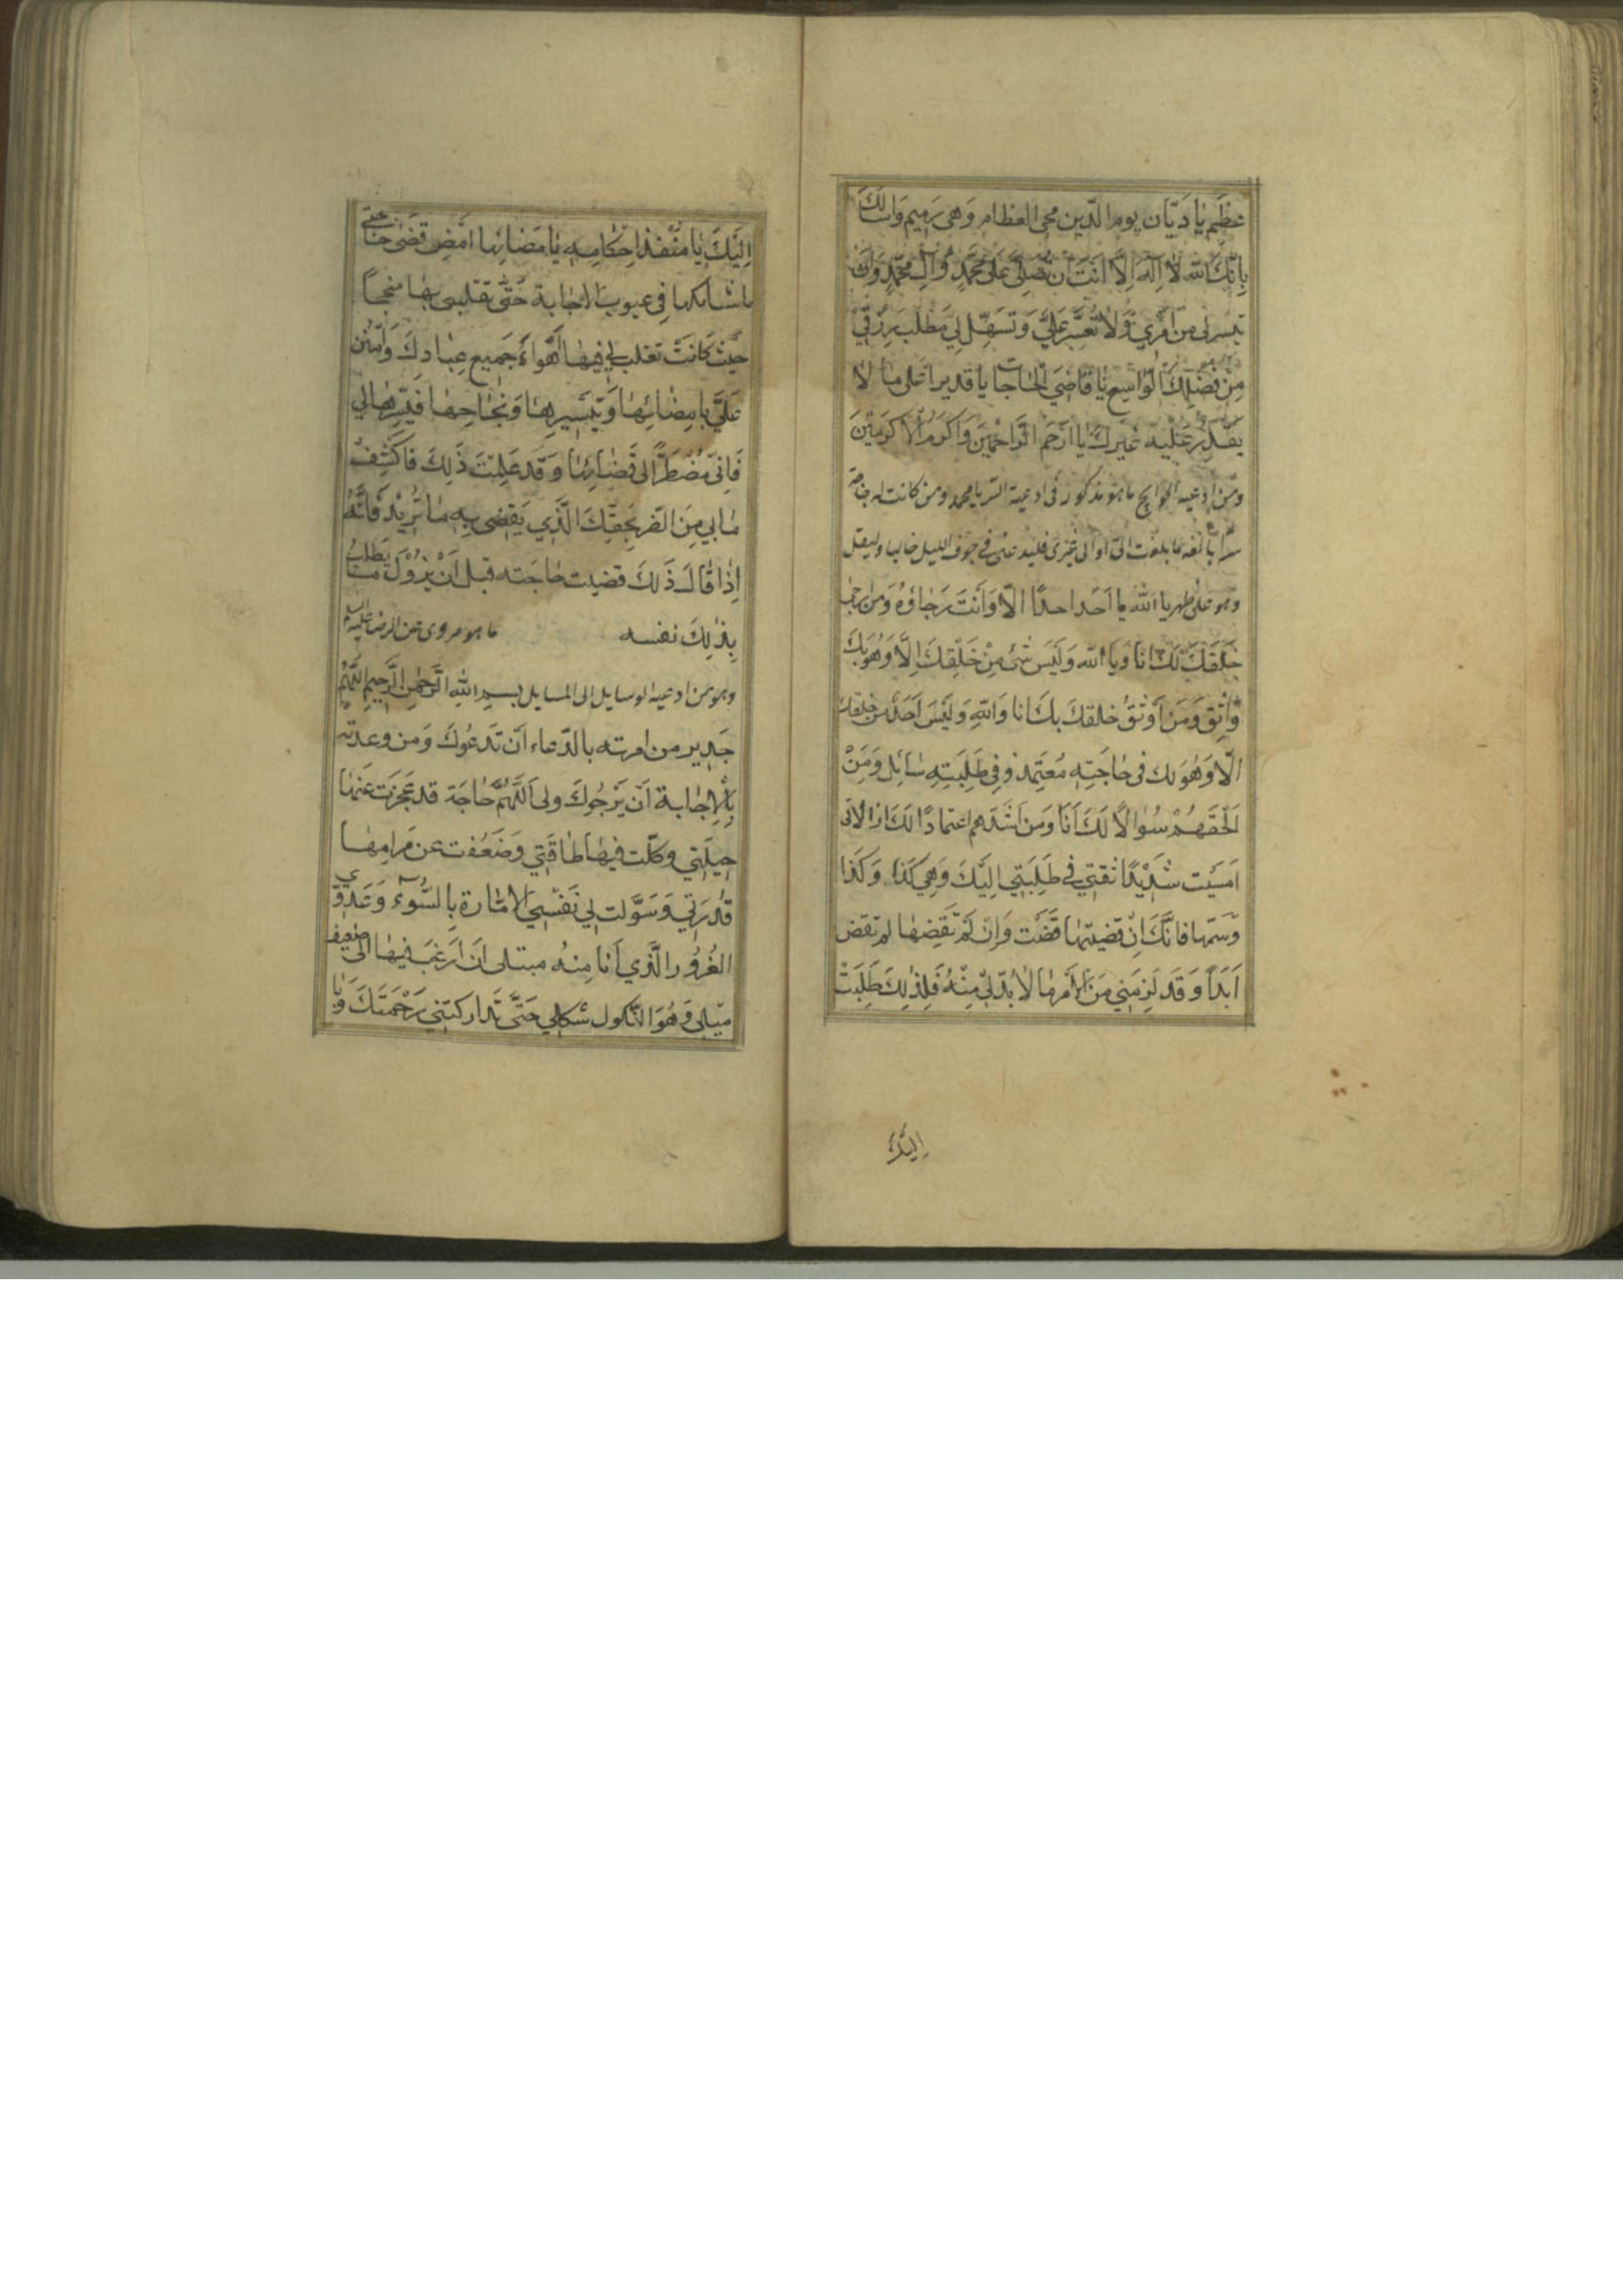 عظيم يا ديّان يوم الدّين محي العظام وهى رميم واسالك
بانّك الله لا اله الّا انت ان تصلّي على محمّد وآل محمّد وان
تيسر لى من امري ولا تعسّر عليّ وتسهّل لي مطلب رزقي
من فضلك الواسع يا قاضي الحاجات يا قديرا على ما لا
يقدر عليه غيرك يا ارحم الرّاحمين واكرم الاكرمين
ومن ادعيه الحوايج ما هو مذكور فى ادعية السّر يا محمد ومن كانت له
سرّا بالغه ما بلغت الىّ او الى غيرى فليدعنى فى جوف الليل خاليا وليقل
وهو على طهر يا الله ما احد احدا الّا وانت رجاؤه ومن ارجى
خلقك لك انا ويا الله وليس شئ من خلقك الّا وهو بك
واثق ومن اوثق خلقك بك انا والله وليس احد من خلقك
الّا وهو لك فى حاجته معتمد وفى طلبته سائل ومن
الحفهم سؤالا لك انا ومن اشدّهم اعتمادا لك انا لانى
امسيت شديدا ثقتي في طلبتي اليك وهي كذا وكذا
وسمّها فانّك ان قضيتها قضت وان لم تقضها لم تقض
ابدا وقد لزمني من الامر ما لا بدّ لي منه فلذلك طلبت
اليك
اليك يا منفذ احكامه يا مضائها امض قضى حاجتى
باثباتكها فى عيوب الاجابة حتّى تقلبى بها منجحا
حيث كانت تغلب لي فيها اهواء جميع عبادك وامنن
عليّ بامضائها وتيسيرها ونجاحها فيسّرها لي
فانى مضطرّ الى قضائها وقد علمت ذلك فاكشف
ما بي من الضر بحقّك الّذي يقضي به ما تريد فانّه
اذا قال ذلك قضيت حاجته قبل ان يزول ما يطلب
بذلك نفسه ما هو مروى عن الرضا عليه السلم
وهو من ادعيه الوسايل الى المسايل بسم الله الرّحمن الرّحيم اللّهمّ
جدير من امرته بالدّعاء ان تدعوك ومن وعدته
بالاجابة ان يرجوك ولى اللّهمّ حاجة قد عجزت عنها
حيلتي وكلّت فيها طاقتي وضعفت عن مرامها
قدرتي وسوّلت لي نفسي الامّارة بالسّوء وعدوّي
الغرور الّذي انا منه مبتلى ان ارغب فيها الى ضعيف
مثلى وهو النّكول شكلي حتّى تداركتني رحمتك ويا